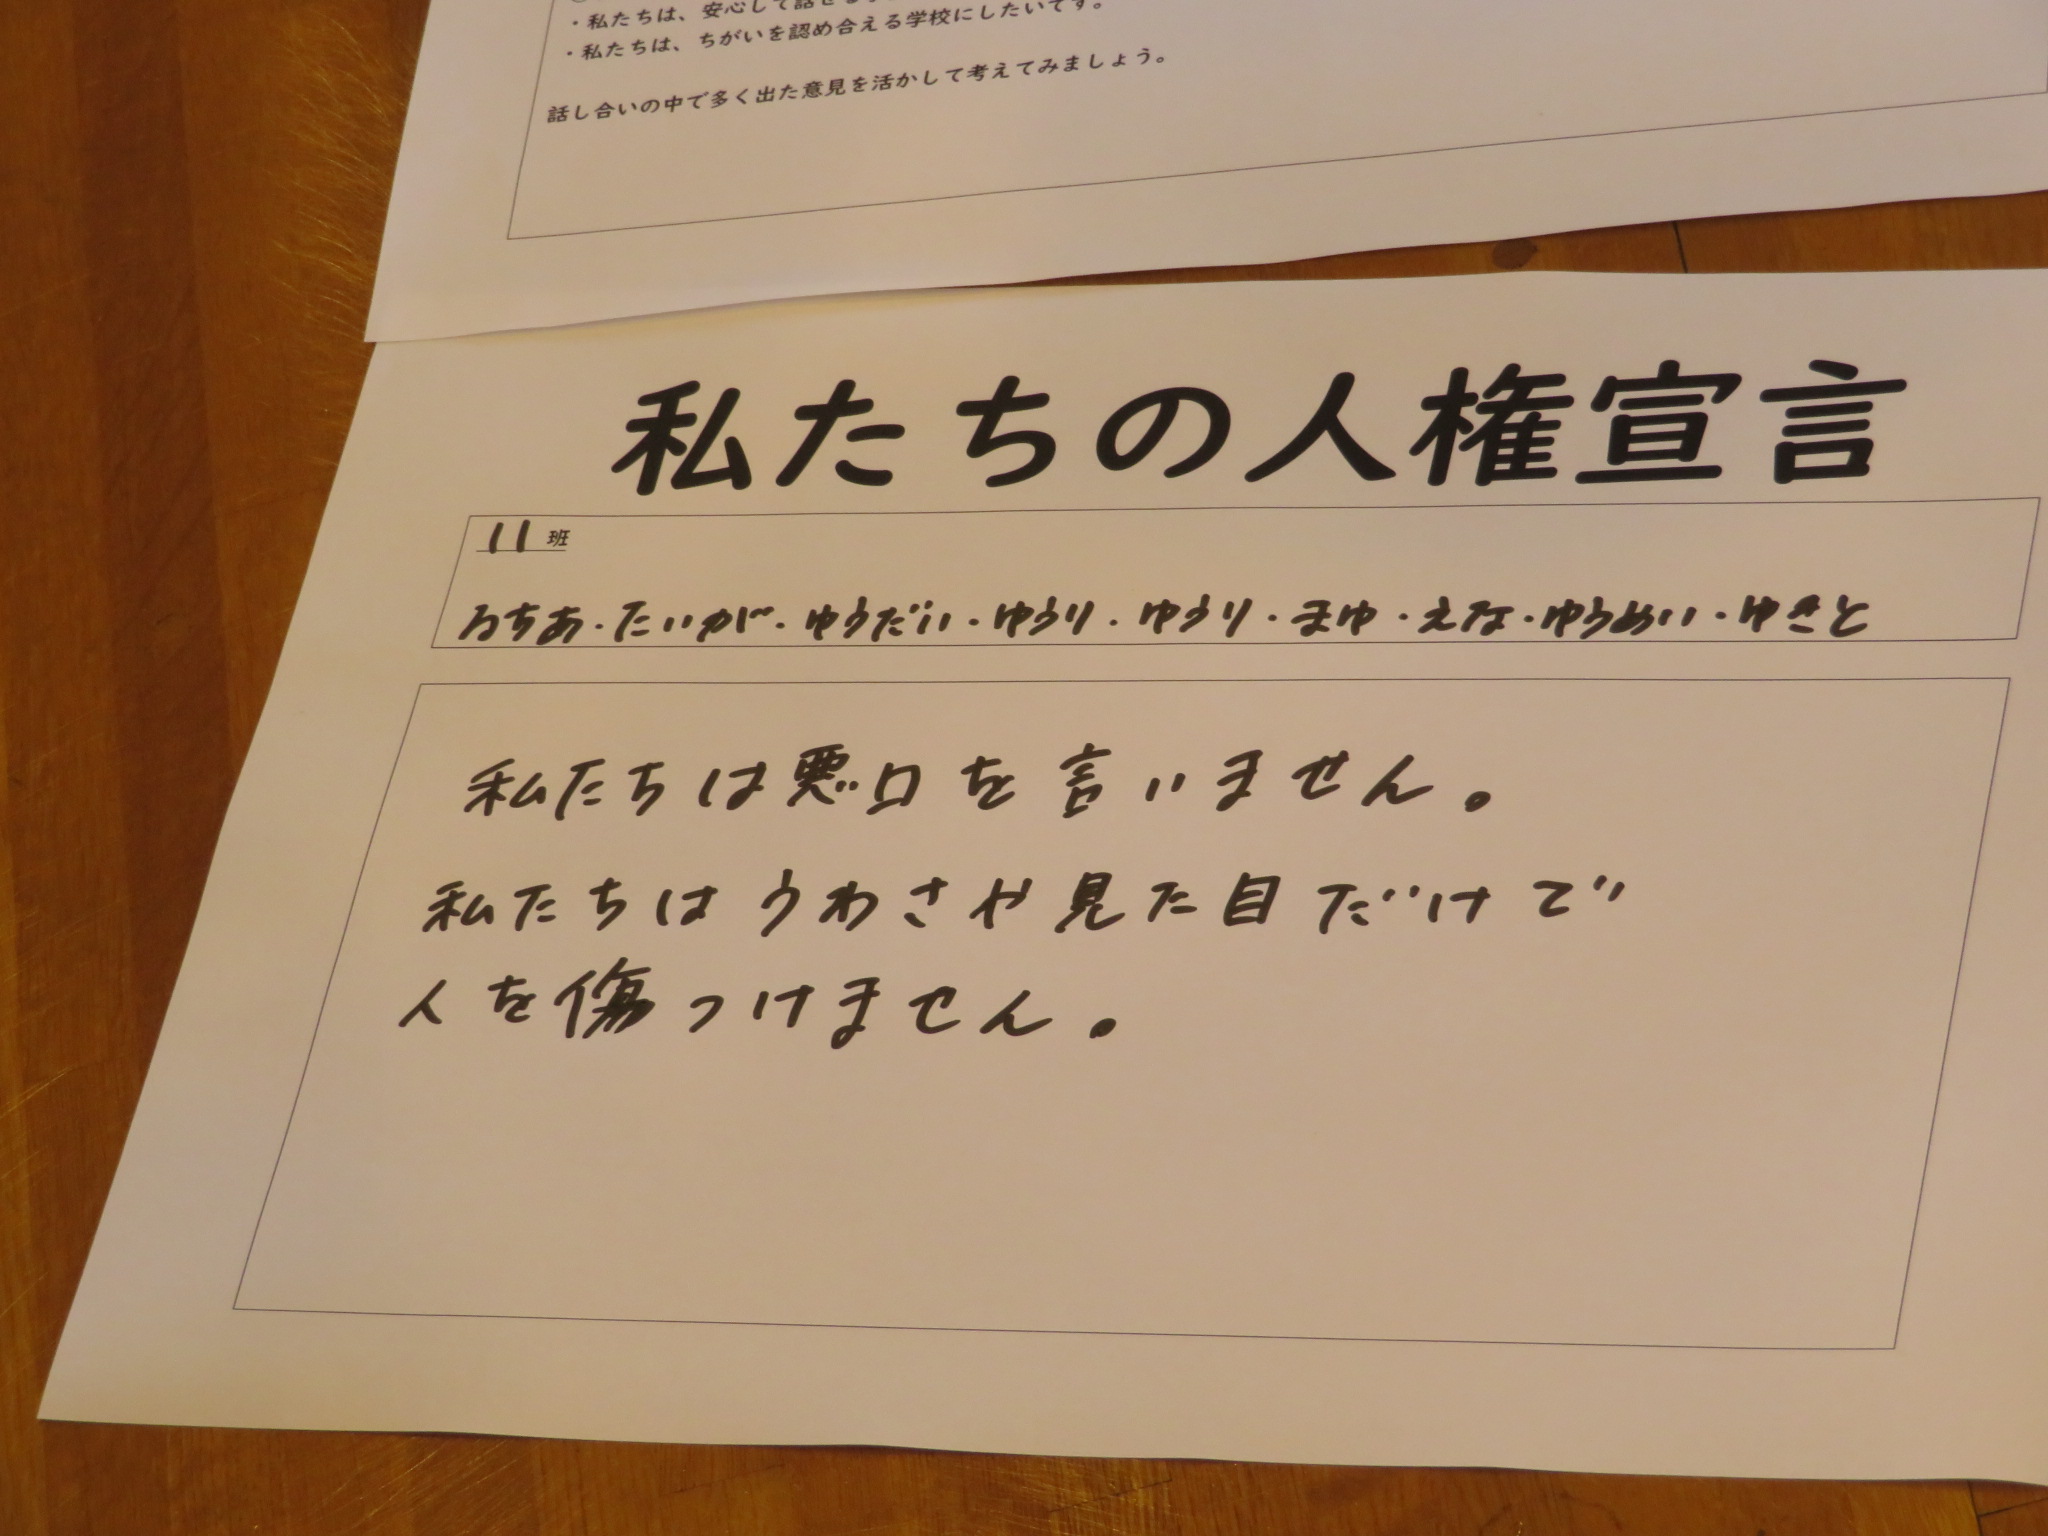 ・私たちは、安心して話せる
・私たちは、ちがいを認め合える学校にしたいです。
話し合いの中で多く出た意見を活かして考えてみましょう。
私たちの人権宣言
11 班
るちあ・たいが・ゆうだい・ゆうり・ゆうり・まゆ・えな・ゆうめい・ゆきと
私たちは悪口を言いません。
私たちはうわさや見た目だけで
人を傷つけません。